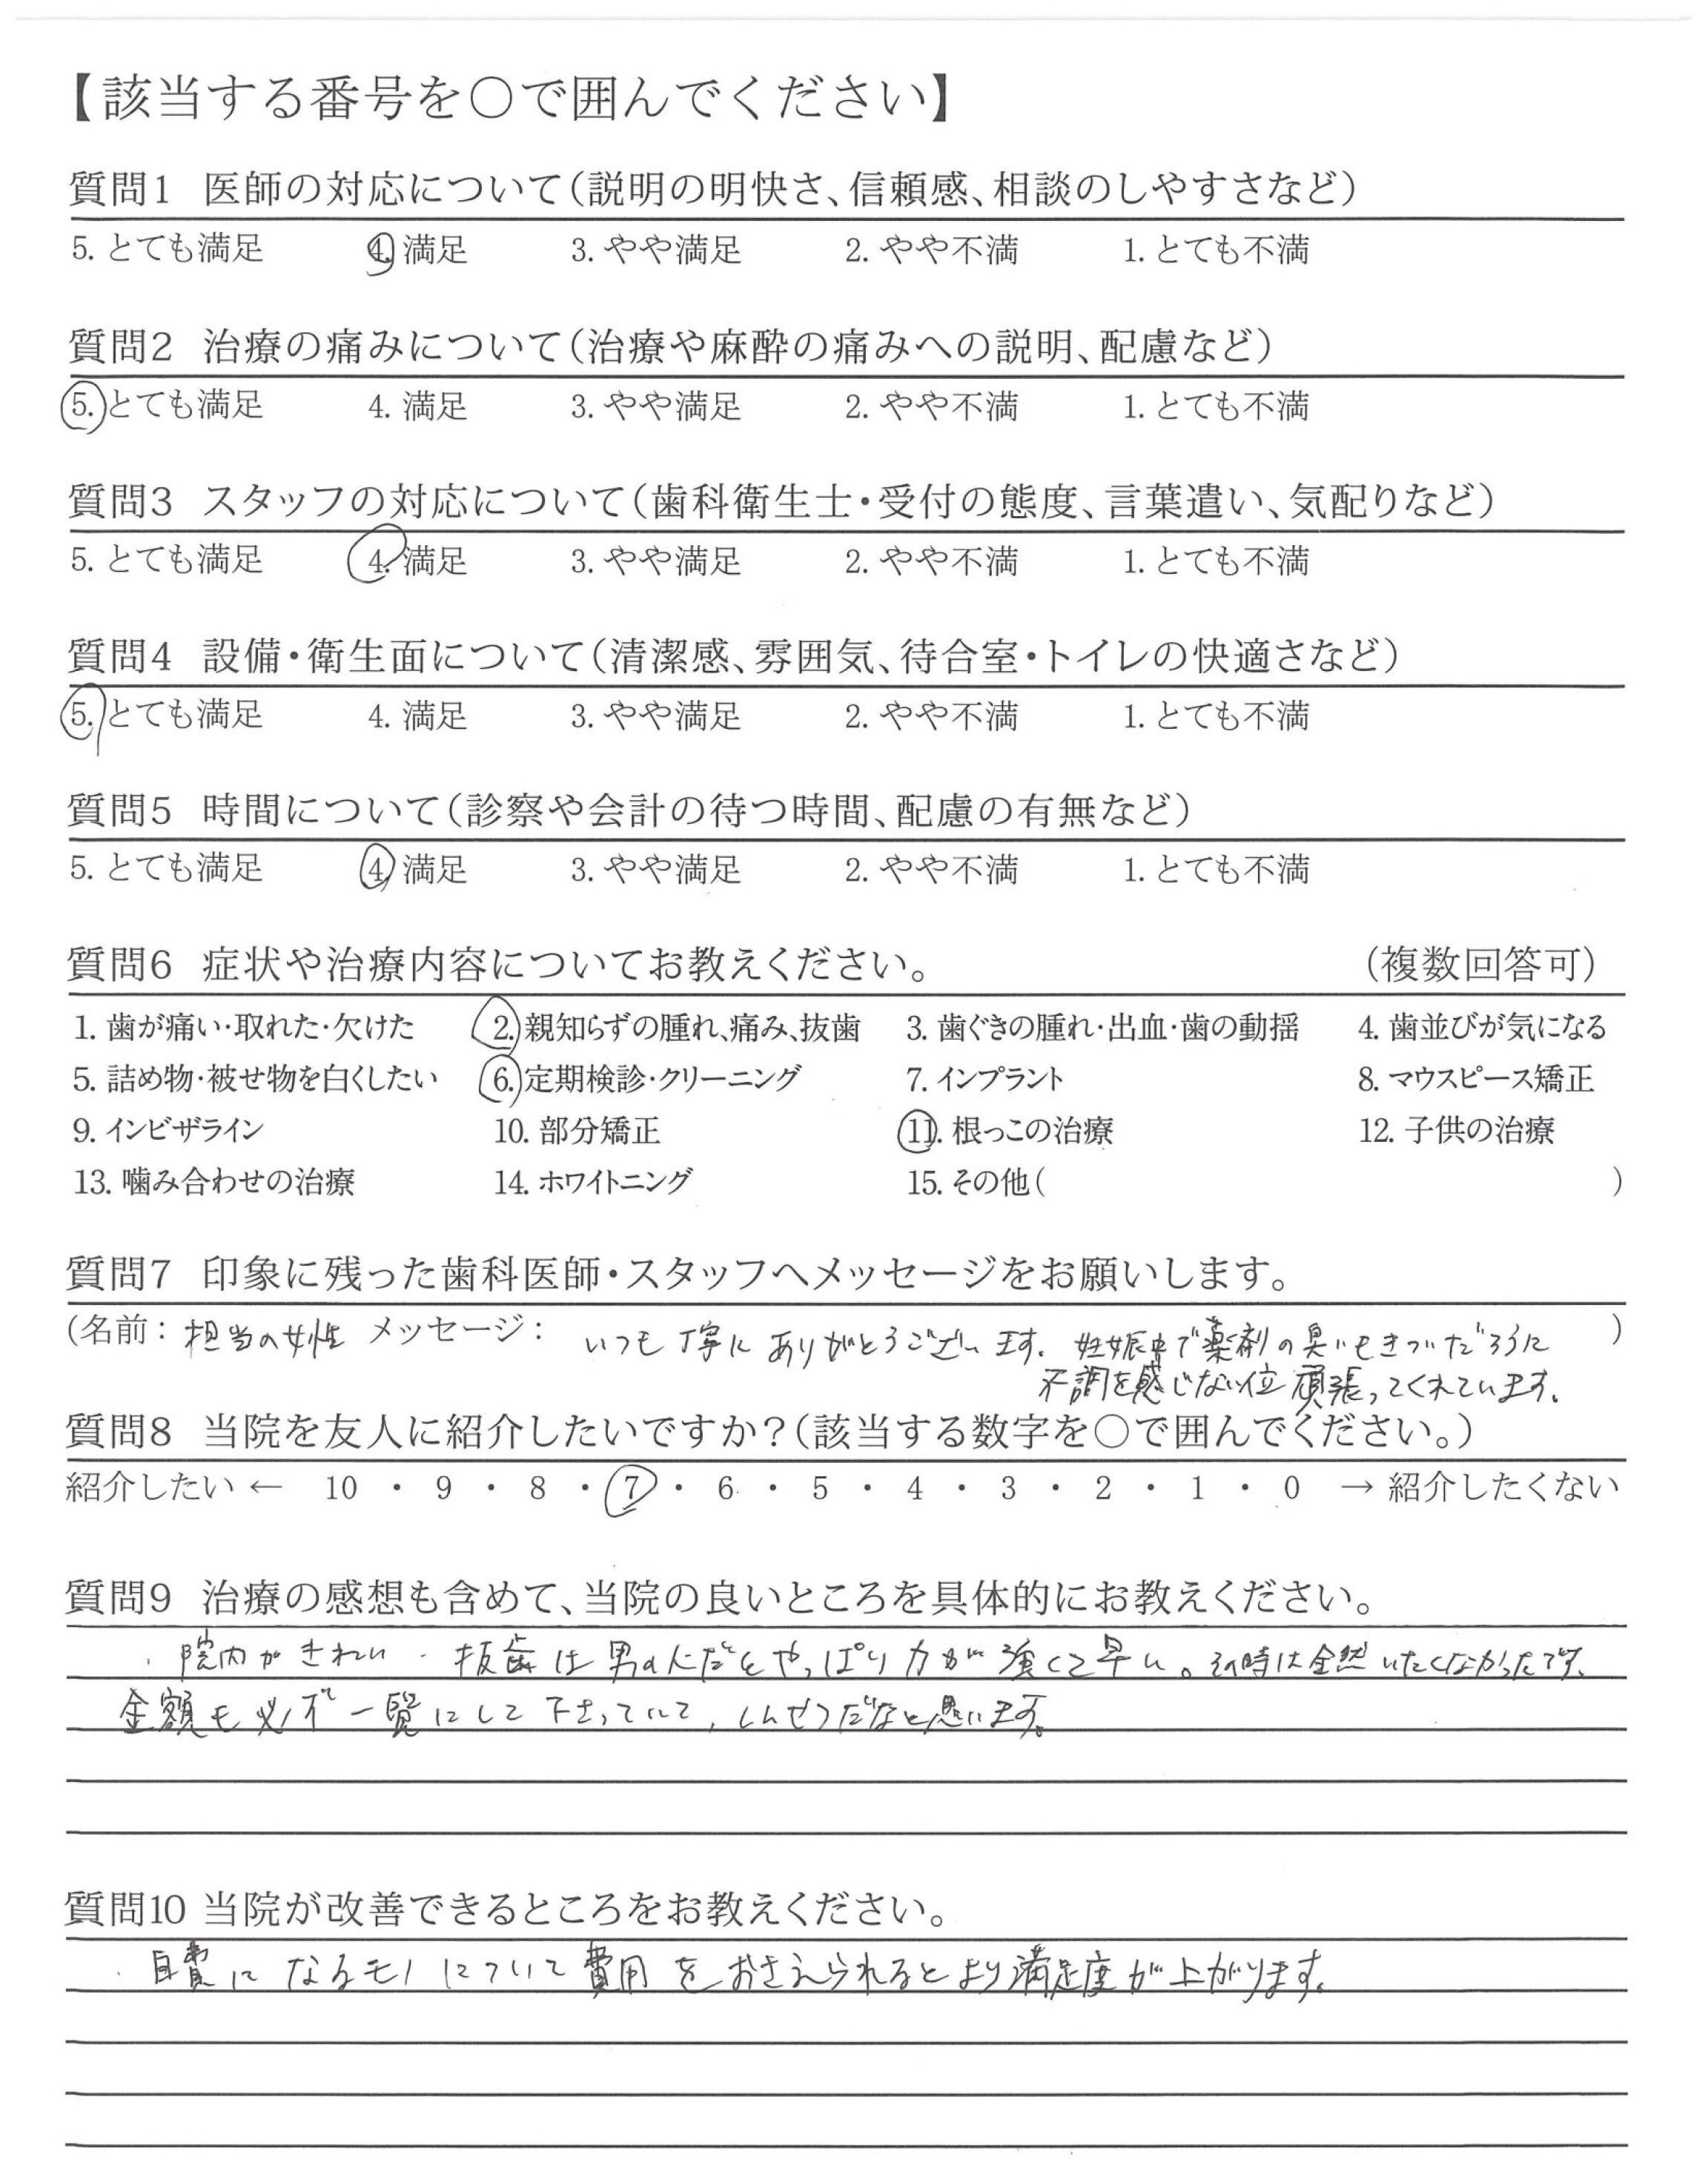 【該当する番号を○で囲んでください】
質問1 医師の対応について(説明の明快さ、信頼感、相談のしやすさなど)
5. とても満足 4. 満足 3. やや満足 2. やや不満 1. とても不満
質問2 治療の痛みについて(治療や麻酔の痛みへの説明、配慮など)
5. とても満足 4. 満足 3. やや満足 2. やや不満 1. とても不満
質問3 スタッフの対応について(歯科衛生士・受付の態度、言葉遣い、気配りなど)
5. とても満足 4. 満足 3. やや満足 2. やや不満 1. とても不満
質問4 設備・衛生面について(清潔感、雰囲気、待合室・トイレの快適さなど)
5. とても満足 4. 満足 3. やや満足 2. やや不満 1. とても不満
質問5 時間について(診察や会計の待つ時間、配慮の有無など)
5. とても満足 4. 満足 3. やや満足 2. やや不満 1. とても不満
質問6 症状や治療内容についてお教えください。 (複数回答可)
1. 歯が痛い・取れた・欠けた 2. 親知らずの腫れ、痛み、抜歯 3. 歯ぐきの腫れ・出血・歯の動揺 4. 歯並びが気になる
5. 詰め物・被せ物を白くしたい 6. 定期検診・クリーニング 7. インプラント 8. マウスピース矯正
9. インビザライン 10. 部分矯正 11. 根っこの治療 12. 子供の治療
13. 噛み合わせの治療 14. ホワイトニング 15. その他( )
質問7 印象に残った歯科医師・スタッフへメッセージをお願いします。
(名前: 担当の女性 メッセージ: いつも丁寧にありがとうございます。妊娠中で薬剤の臭いもきついだろうに )
不調を感じない位頑張ってくれています。
質問8 当院を友人に紹介したいですか?(該当する数字を○で囲んでください。)
紹介したい ← 10 ・ 9 ・ 8 ・ 7 ・ 6 ・ 5 ・ 4 ・ 3 ・ 2 ・ 1 ・ 0 → 紹介したくない
質問9 治療の感想も含めて、当院の良いところを具体的にお教えください。
・院内がきれい ・抜歯は男の人だとやっぱり力が強くて早い。その時は全然いたくなかったです。
金額も必ず一覧にして下さっていて、しんせつだなと思います。
質問10 当院が改善できるところをお教えください。
・自費になるモノについて費用をおさえられるとより満足度が上がります。